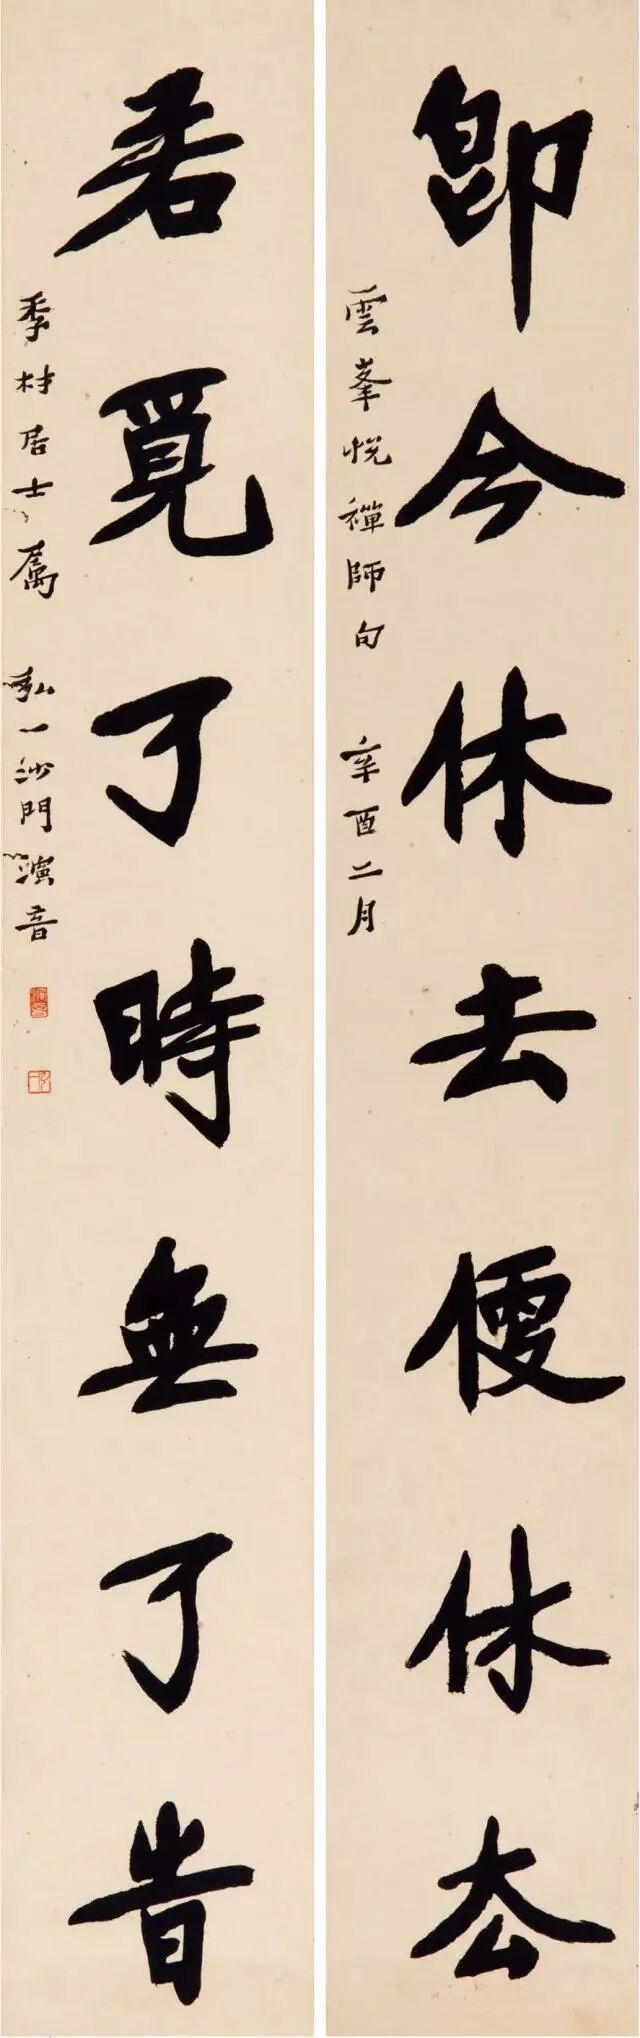 即今休去便休厺
雲峯悅禪師句 辛酉二月
若覓了時無了旹
季材居士屬 弘一沙門演音